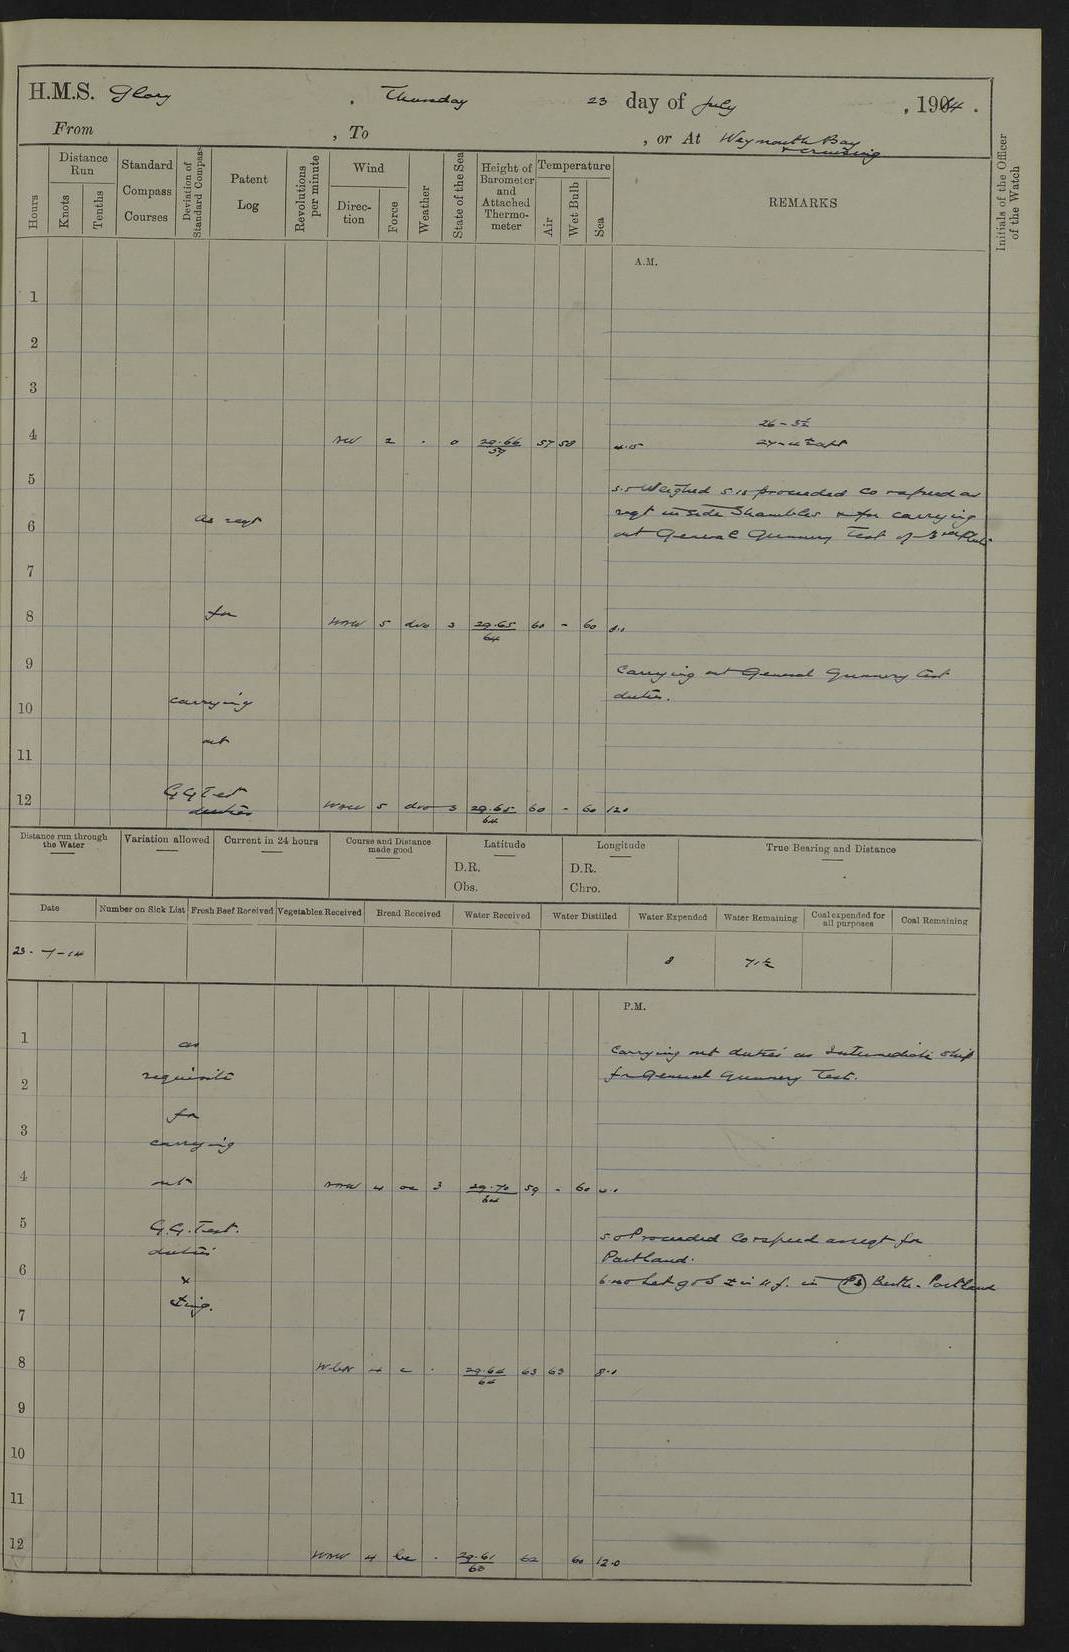 H.M.S. Glory , Thursday 23 day of July , 1914 .
From , To , or At Weymouth Bay
& cruising
Hours
Distance Run
Knots
Tenths
Standard Compass Courses
Deviation of Standard Compass
Patent Log
Revolutions per minute
Wind
Direction
Force
Weather
State of the Sea
Height of Barometer and Attached Thermometer
Temperature
Air
Wet Bulb
Sea
REMARKS
Initials of the Officer of the Watch
A.M.
1
2
3
26 - 5½
4 NW 2 . 0 29.66 57 58 4.5
59
5
5.5 Weighed 5.15 proceeded Co & speed as
6 as reqt reqt inside Shambles & for carrying
out General Gunnery Test of
7
8 for WNW 5 3 29.65 60 - 60 8.0
64
9
Carrying out General Gunnery test
10 carrying duties.
out
11
G G Test
12 duties WNW 5 3 29.65 60 - 60 12.0
64
Distance run through the Water
Variation allowed
Current in 24 hours
Course and Distance made good
Latitude
D.R.
Obs.
Longitude
D.R.
Chro.
True Bearing and Distance
Date
Number on Sick List
Fresh Beef Received
Vegetables Received
Bread Received
Water Received
Water Distilled
Water Expended
Water Remaining
Coal expended for all purposes
Coal Remaining
23-7-14 8 71½
P.M.
1 as Carrying out duties as Intermediate Ship
2 requisite for General Gunnery Test.
for
3 carrying
4 out WNW 4 oc 3 29.70 59 - 60 4.0
64
5 G.G. Test. 5.0 Proceeded Co & speed as reqt for
duties Portland.
6 & Berth - Portland
7
8 W by N 4 c . 29.64 63 63 8.0
64
9
10
11
12 WNW 4 bc . 29.61 62 60 12.0
63